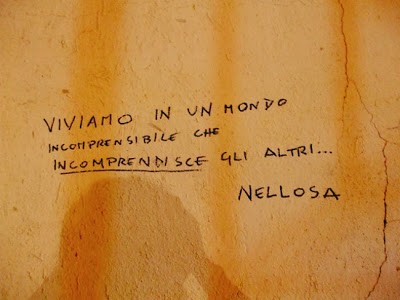 VIVIAMO IN UN MONDO
INCOMPRENSIBILE CHE
INCOMPRENDISCE GLI ALTRI...
NELLOSA